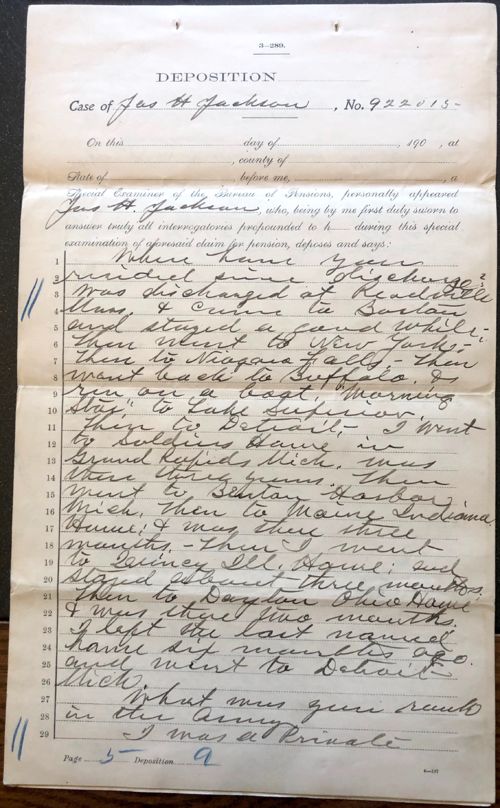 3—289.
DEPOSITION
Case of Jas H Jackson, No. 922015-
On this day of , 190 , at
, county of
State of , before me, , a
Special Examiner of the Bureau of Pensions, personally appeared
Jas H. Jackson, who, being by me first duly sworn to
answer truly all interrogatories propounded to h during this special
examination of aforesaid claim for pension, deposes and says:
1 Where have you
2 resided since discharge?
3 was discharged at Readville
4 Mass. & came to Boston
5 and stayed a good while -
6 then went to New York; -
7 then to Niagara Falls - then
8 went back to Buffalo. &
9 run on a boat, "Morning
10 Star" to Lake Superior.
11 then to Detroit, I went
12 to Soldiers Home in
13 Grand Rapids Mich. was
14 there three years. Then
15 went to Benton Harbor,
16 Mich. then to Marion Indiana
17 Home; & was there three
18 months. - Then I went
19 to Quincy Ill. Home; and
20 stayed about three months.
21 then to Dayton Ohio Home
22 & was there two months.
23 I left the last named
24 home six months ago.
25 and went to Detroit
26 Mich.
27 What was your rank
28 in the Army
29 I was a Private
Page 5 Deposition 9
6—137